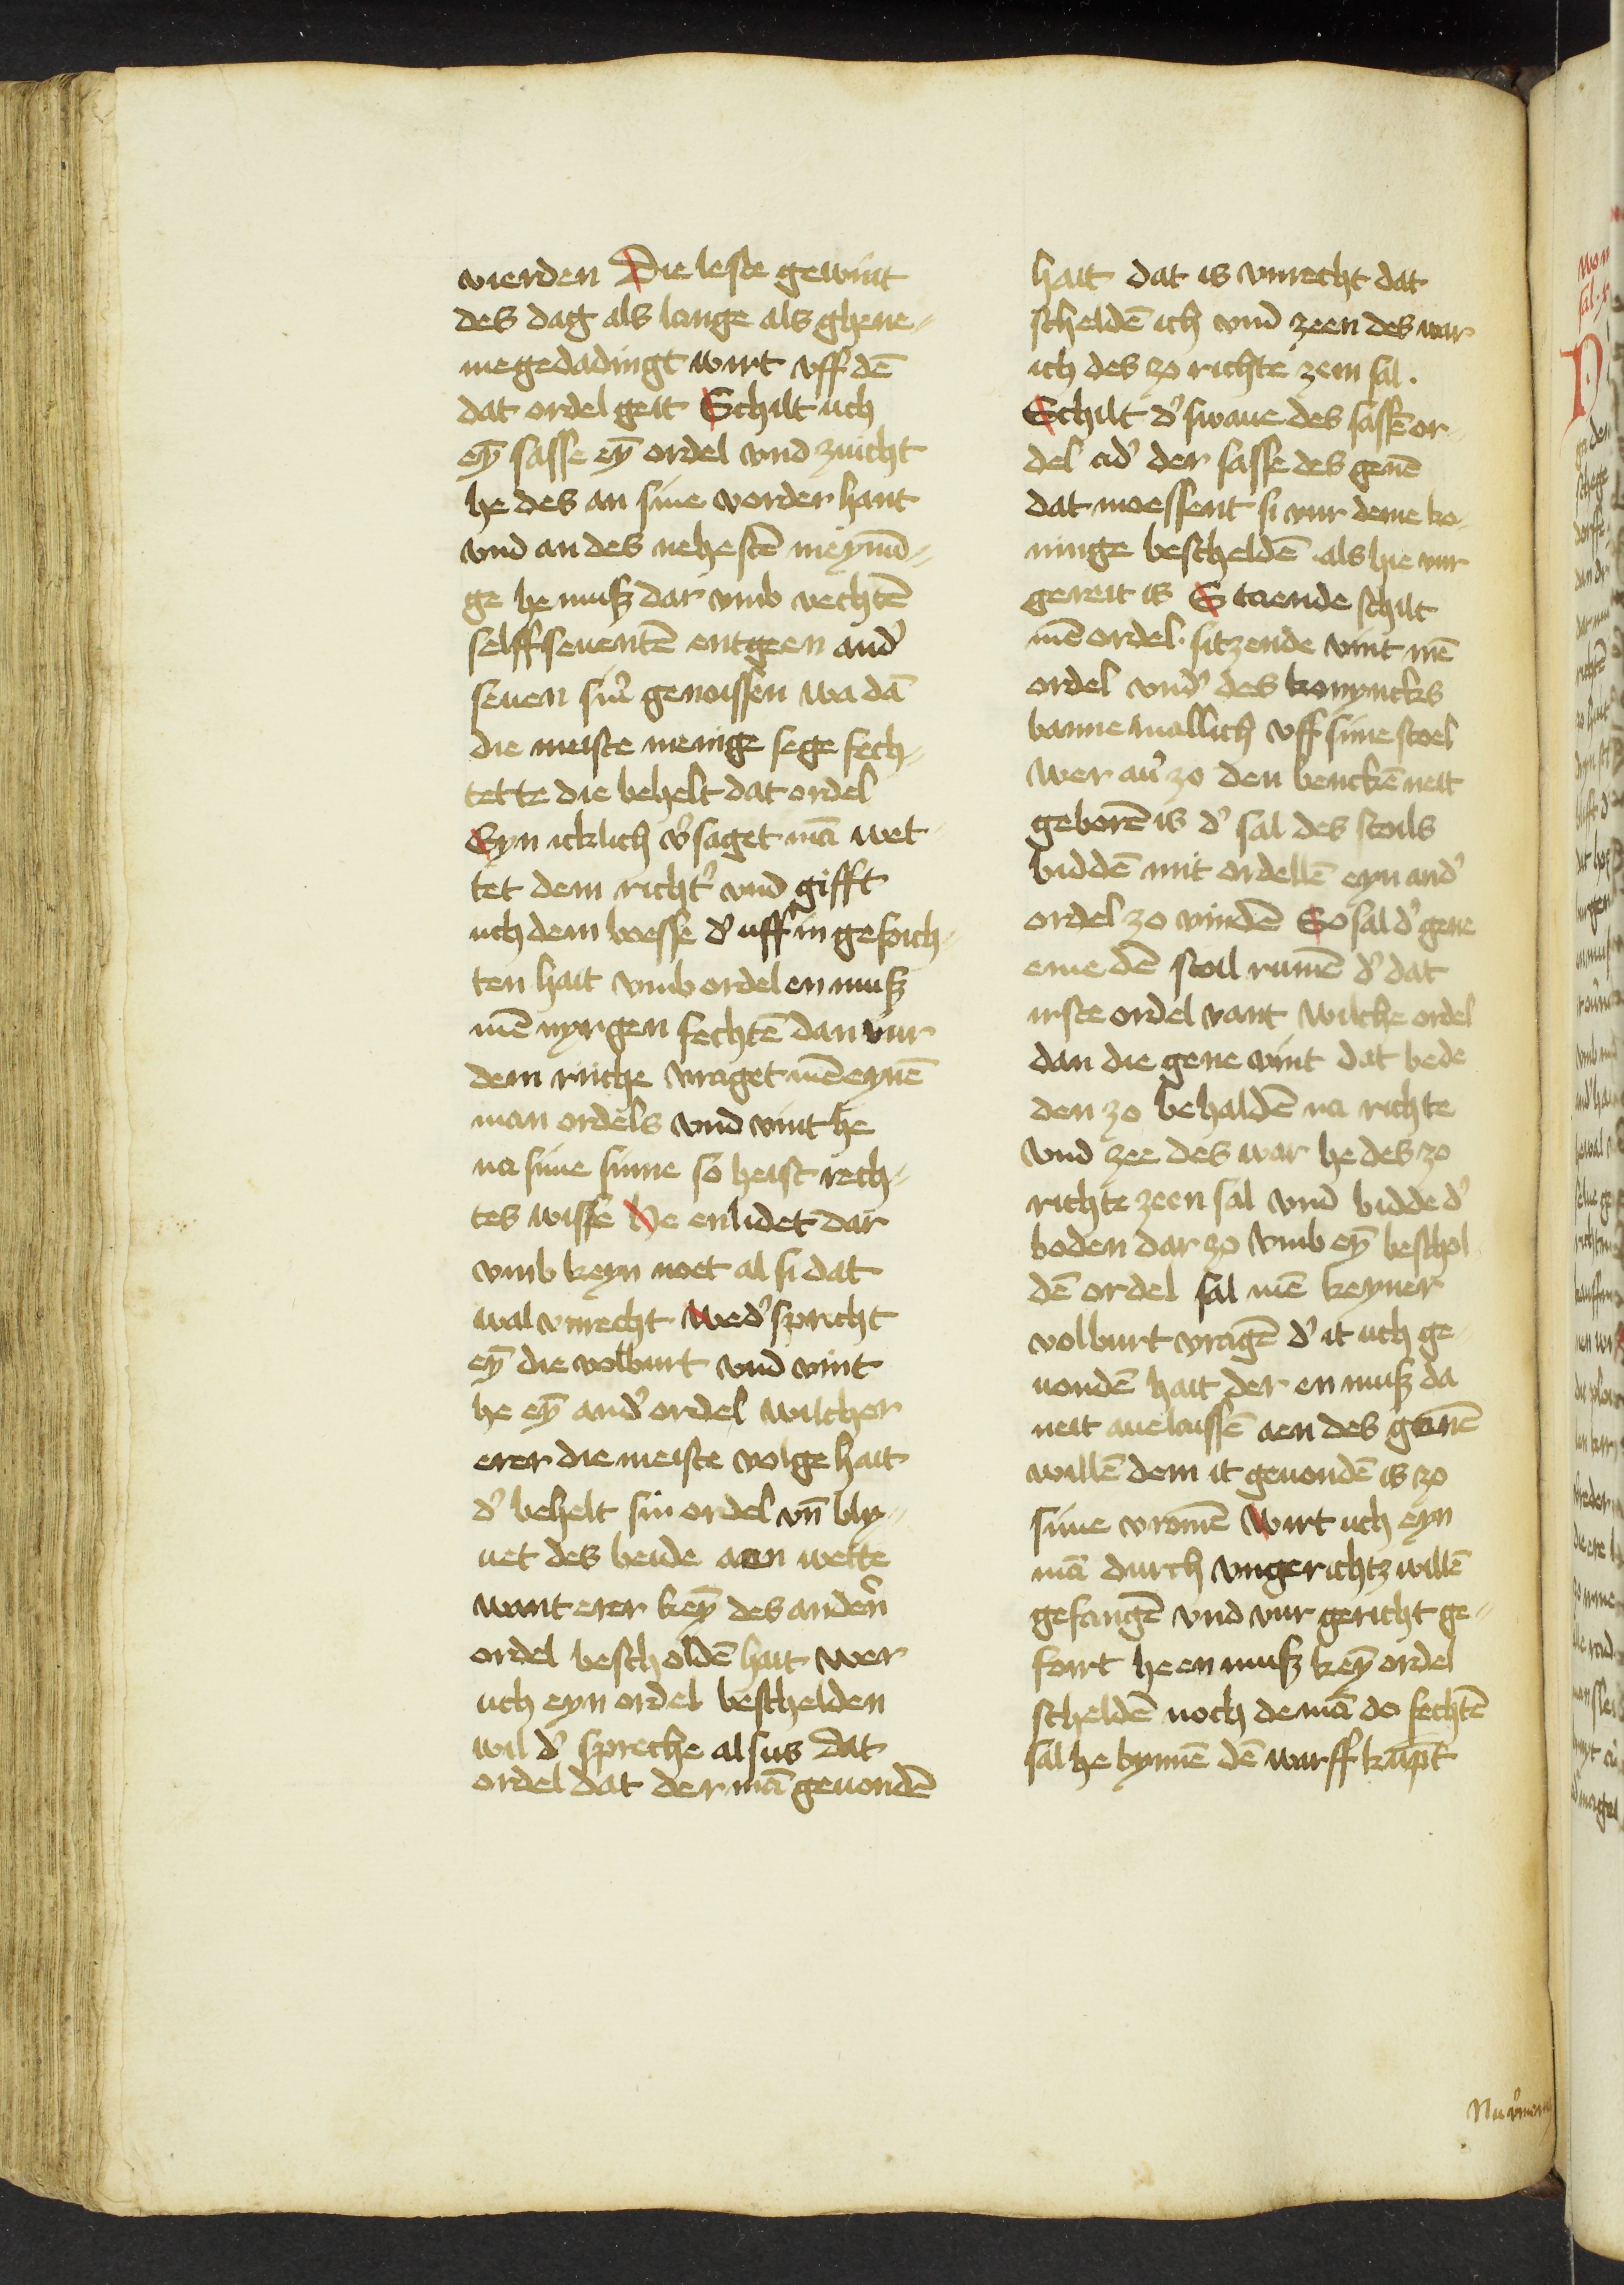 vierden Die leste gewint
des dag als lange als ghene-
me gedadingt wirt vff dē
dat ordel geit Schilt uch
eȳ sasse eȳ ordel vnd zuicht
he des an sine vorder hant
vnd an des nehestē meynī-
ge he muß dar vmb vechtē
selffseuentē entgeen and'
seuen sin' genoissen wa dā
die meiste menige sege fech-
tette die behelt dat ordel
Eyn icklich v'saget mā wet-
tet dem richt' vnd gifft
uch dem boesse d' uff in gefoich-
ten hait vmb ordel en muß
mē nyrgen fechtē dan vur
dem riiche vraget mē eynē
man ordels vnd vint he
na sine sinne so he ist rech-
tes wisse He enlidet dar
vmb keyn noet al si dat
wal vnrecht wed' spricht
eȳ die volburt vnd vint
he eȳ and' ordel wilcher
erer die meiste volge hait
d' behelt sin ordel vn̄ bly-
uet des beide aen wette
want erer keȳ des anden'
ordel bescholdē hait wer
uch eyn ordel beschelden
wil d' spreche alsus dat
ordel dat der mā geuondē
hait dat is vnrecht dat
scheldē ich vnd zeen des war
ich des zo richte zein sal.
Schilt d' swaue des sassē or-
del ad' der sasse des genē
dat moessent si vur deme ko-
ninge bescheldē als hie vur
gereit is Staende schilt
mē ordel. sitzende vint mē
ordel vnd' des konyncks
banne mallich vff sime stoel
Wer au' zo den benckē neit
geborē is d' sal des stoils
biddē mit ordellē eyn and'
ordel zo vindē So sal d' gene
eme dē stoil rumē d' dat
irste ordel vant wilche ordel
dan die gene vint dat bede
den zo behaldē na richte
vnd zee des war he des zo
richte zeen sal vnd bidde d'
boden dar zo vmb eȳ beschol
dē ordel sal mē keyner
volburt vragē d' it uch ge-
uondē hait der en muß da
neit auelaissē aen des genē
willē dem it geuondē is zo
sime vromē Wirt uch eyn
mā durch vngerichtz willē
gefangē vnd vur gericht ge-
foirt he en muß keȳ ordel
scheldē noch de mā do fechtē
sal he bynnē dē warff kūpt